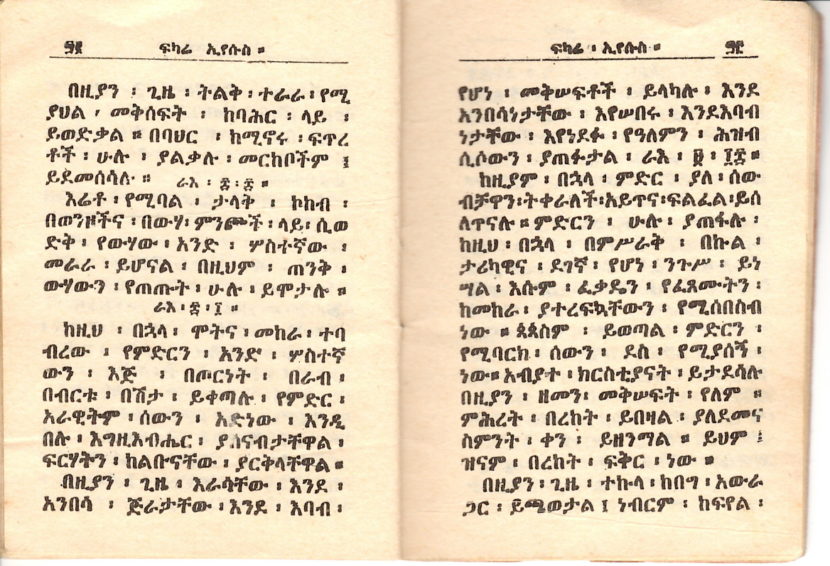 ፵፬ ፍካሬ ኢየሱስ ።
በዚያን ፡ ጊዜ ፡ ትልቅ ፡ ተራራ ፡ የሚ
ያህል ፡ መቅሰፍት ፡ ከባሕር ፡ ላይ ፡
ይወድቃል ። በባህር ፡ ከሚኖሩ ፡ ፍጥረ
ቶች ፡ ሁሉ ፡ ያልቃሉ ፡ መርከቦችም ፤
ይደመሰሳሉ ። ራእ ፡ ፰ ፡ ፰ ።
እሬቶ ፡ የሚባል ፡ ታላቅ ፡ ኮከብ ፡
በወንዞችና ፡ በውሃ ፡ ምንጮች ፡ ላይ ፡ ሲወ
ድቅ ፡ የውሃው ፡ አንድ ፡ ሦስተኛው ፡
መራራ ፡ ይሆናል ፡ በዚህም ፡ ጠንቅ ፡
ውሃውን ፡ የጠጡት ፡ ሁሉ ፡ ይሞታሉ ።
ራእ ፡ ፰ ፡ ፲ ።
ከዚህ ፡ በኋላ ፡ ሞትና ፡ መከራ ፡ ተባ
ብረው ፡ የምድርን ፡ አንድ ፡ ሦስተኛ
ውን ፡ እጅ ፡ በጦርነት ፡ በራብ ፡
በብርቱ ፡ በሽታ ፡ ይቀጣሉ ፡ የምድር ፡
አራዊትም ፡ ሰውን ፡ አድነው ፡ እንዲ
በሉ ፡ እግዚአብሔር ፡ ያሰናብታቸዋል ፡
ፍርሃትን ፡ ከልቡናቸው ፡ ያርቅላቸዋል ።
በዚያን ፡ ጊዜ ፡ እራሳቸው ፡ እንደ ፡
አንበሳ ፡ ጅራታቸው ፡ እንደ ፡ እባብ ፡
ፍካሬ ፡ ኢየሱስ ።
የሆነ ፡ መቅሠፍቶች ፡ ይላካሉ ፡ እንደ
አንበሳነታቸው ፡ እየሠበሩ ፡ እንደእባብ
ነታቸው ፡ እየነደፉ ፡ የዓለምን ፡ ሕዝብ
ሲሶውን ፡ ያጠፋታል ፡ ራእ ፡ ፱ ፡ ፲፰ ።
ከዚያም ፡ በኋላ ፡ ምድር ፡ ያለ ፡ ሰው
ብቻዋን ፡ ትቀራለች ፡ አይጥና ፡ ፍልፈል ፡ ይሰ
ለጥናሉ ። ምድርን ፡ ሁሉ ፡ ያጠፋሉ ፡
ከዚህ ፡ በኋላ ፡ በምሥራቅ ፡ በኩል ፡
ታሪካዊና ፡ ደገኛ ፡ የሆነ ፡ ንጉሥ ፡ ይነ
ሣል ፡ እሱም ፡ ፈቃዴን ፡ የፈጸሙትን ፡
ከመከራ ፡ ያተረፍኳቸውን ፡ የሚሰበስብ
ነው ። ጳጳስም ፡ ይወጣል ፡ ምድርን ፡
የሚባርክ ፡ ሰውን ፡ ደስ ፡ የሚያሰኝ ፡
ነው ። አብያተ ፡ ክርስቲያናት ፡ ይታደሳሉ
በዚያን ፡ ዘመን ፡ መቅሠፍት ፡ የለም ።
ምሕረት ፡ በረከት ፡ ይበዛል ፡ ያለደመና
ስምንት ፡ ቀን ፡ ይዘንማል ። ይህም ፤
ዝናም ፡ በረከት ፡ ፍቅር ፡ ነው ።
በዚያን ፡ ጊዜ ፡ ተኩላ ፡ ከበግ ፡ አውራ
ጋር ፡ ይጫወታል ፤ ነብርም ፡ ከፍየል ፡